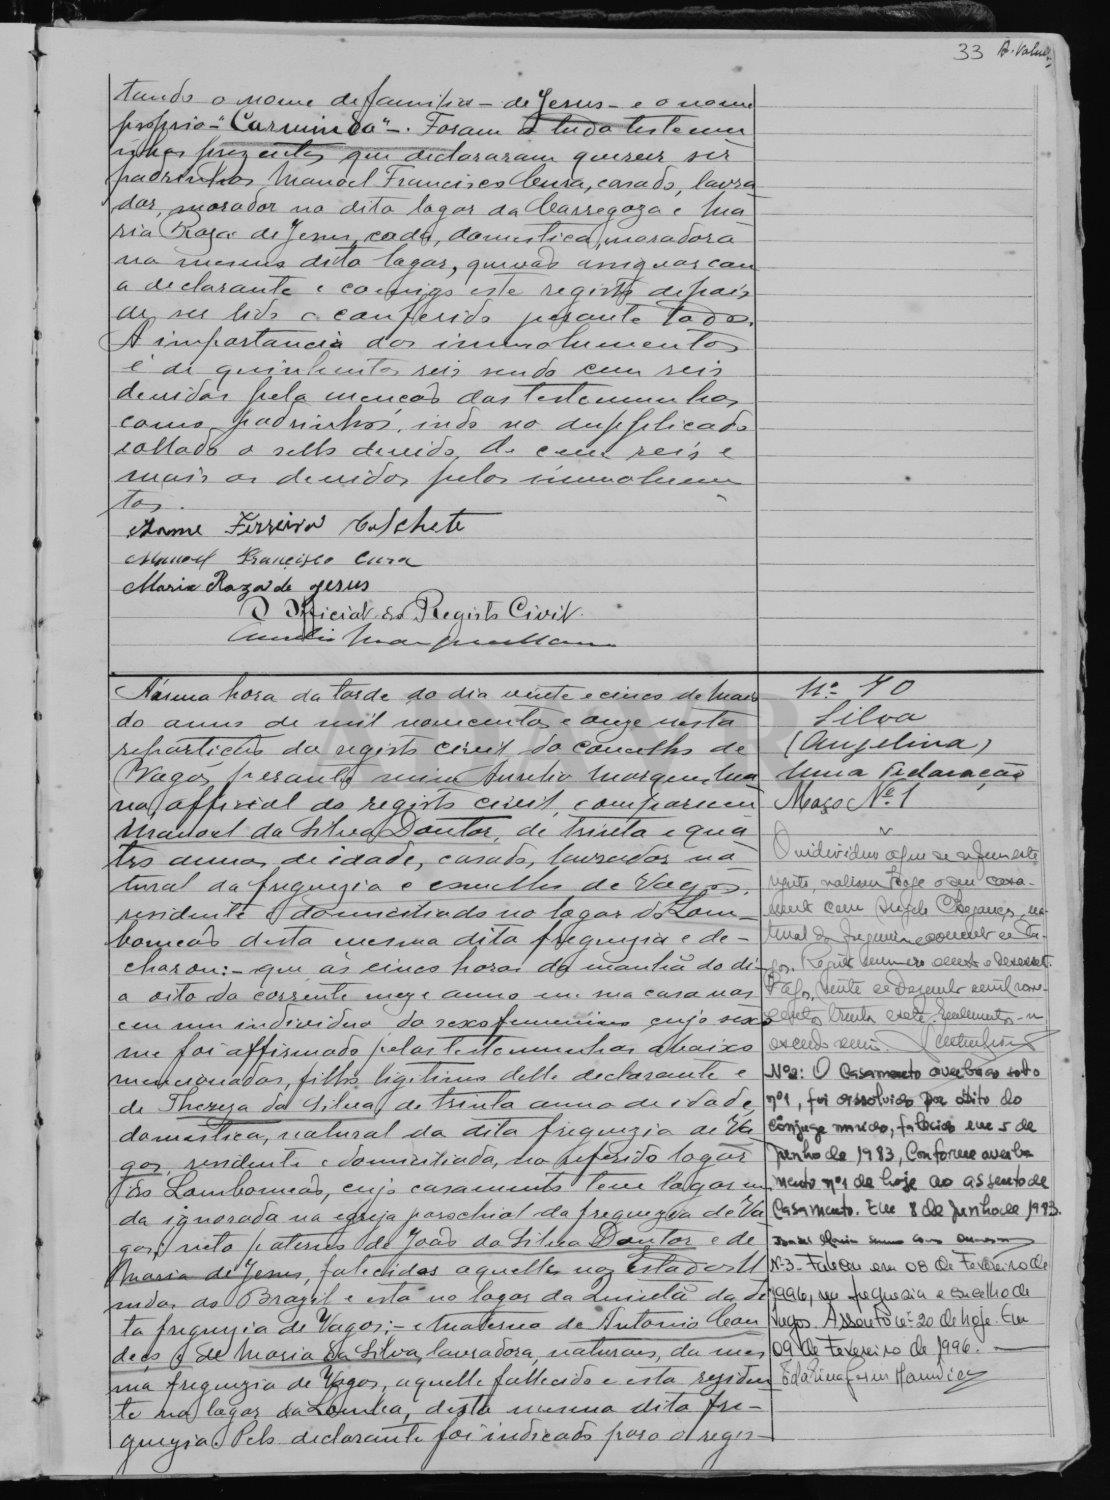 33
tando o nome de familia - de Jesus - e o nome
proprio - "Carminda" -. Foram a tudo testemu
nhas prezentes que declararam querer ser
padrinhos Manoel Francisco Cura, casado, lavra
dor, morador no dito logar da Carregoza e Ma
ria Roza de Jesus, domestica, moradora
no mesmo dito logar, que vão assignar com
a declarante e comigo este registo depois
de ser lido e conferido perante todos.
A importancia dos imnolumentos
é de quinhentos reis sendo cem reis
devidos pela menção das testemunhas
como padrinhos, indo no dupplicado
collado o sello devido, de cem reis e
mais os devidos pelos imnolumen
tos.
Ferreira Colchete
Manoel Francisco Cura
Maria Roza de Jesus
O Official do Registo Civil
A uma hora da tarde do dia vinte e cinco de Maio
do anno de mil novecentos e onze nesta
repartição do registo civil do concelho de
Vagos, perante mim Aurelio Marques Ma
no, official do registo civil, compareceu
Manoel da Silva Doutor, de trinta e qua
tro annos de idade, casado, lavrador na
tural da freguezia e concelho de Vagos,
residente e domiciliado no logar do Lom-
bomeão desta mesma dita freguezia e de-
clarou: - que ás cinco horas da manhã do di-
a oito do corrente mez e anno em sua casa nas
ceu um individuo do sexo femenino cujo sexo
me foi affirmado pelas testemunhas abaixo
mencionadas, filho ligitimo delle declarante e
de Thereza da Silva, de trinta annos de idade,
domestica, natural da dita freguezia de Va
gos, residente e domiciliada, no referido logar
do Lombomeão, cujo casamento teve logar em
da ignorada na egreja parochial da freguezia de Va
gos, neto paterno de João da Silva Doutor e de
Maria de Jesus, falecidos aquelle nos Estados U
nidos do Brazil e esta no logar da Quintã da di
ta freguezia de Vagos; - e materno de Antonio Can
deias e de Maria da Silva, lavradora, naturaes, da mes
ma freguezia de Vagos, aquelle fallecido e esta residen
te no logar da Lomba, desta mesma dita fre-
guezia. Pelo declarante foi indicado para o regis-
Nº 70
Silva
(Angelina)
Uma Declaração
Maço Nº 1
O individuo a que se refere este
registo, realisou hoje o seu casa-
mento com Angelo, na-
tural da freguesia e concelho de Va-
gos. Registo numero cento e
Vagos, vinte de Dezembro de mil nove-
centos trinta e sete.
Nº2: O casamento averbado sob o
nº1, foi dissolvido por óbito do
cônjuge marido, falecido em 5 de
Junho de 1983, Conforme averba
mento nº1 de hoje ao assento de
Casamento. Em 8 de Junho de 1983.
Nº3 - Faleceu em 08 de Fevereiro de
1996, na freguesia e concelho de
Vagos. Assento nº 20 de hoje. Em
09 de Fevereiro de 1996.